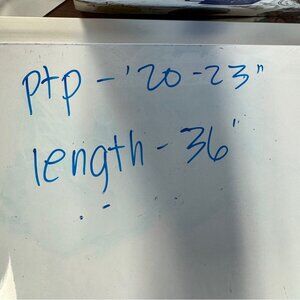 ptp - '20 - 23"
length - 36"